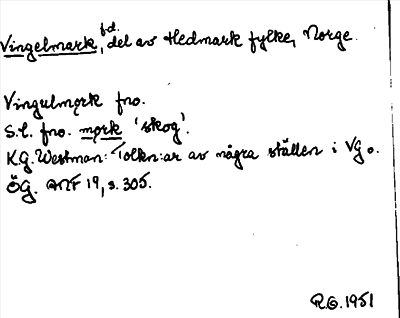 Vingelmark, f.d. del av Hedmark fylke, Norge.
Vingulmǫrk fno.
S.l. fno. mǫrk 'skog'.
K.G. Westman: Tolkn:ar av några ställen i Vg o.
ÖG. ANF 19, s. 305.
R.O. 1951